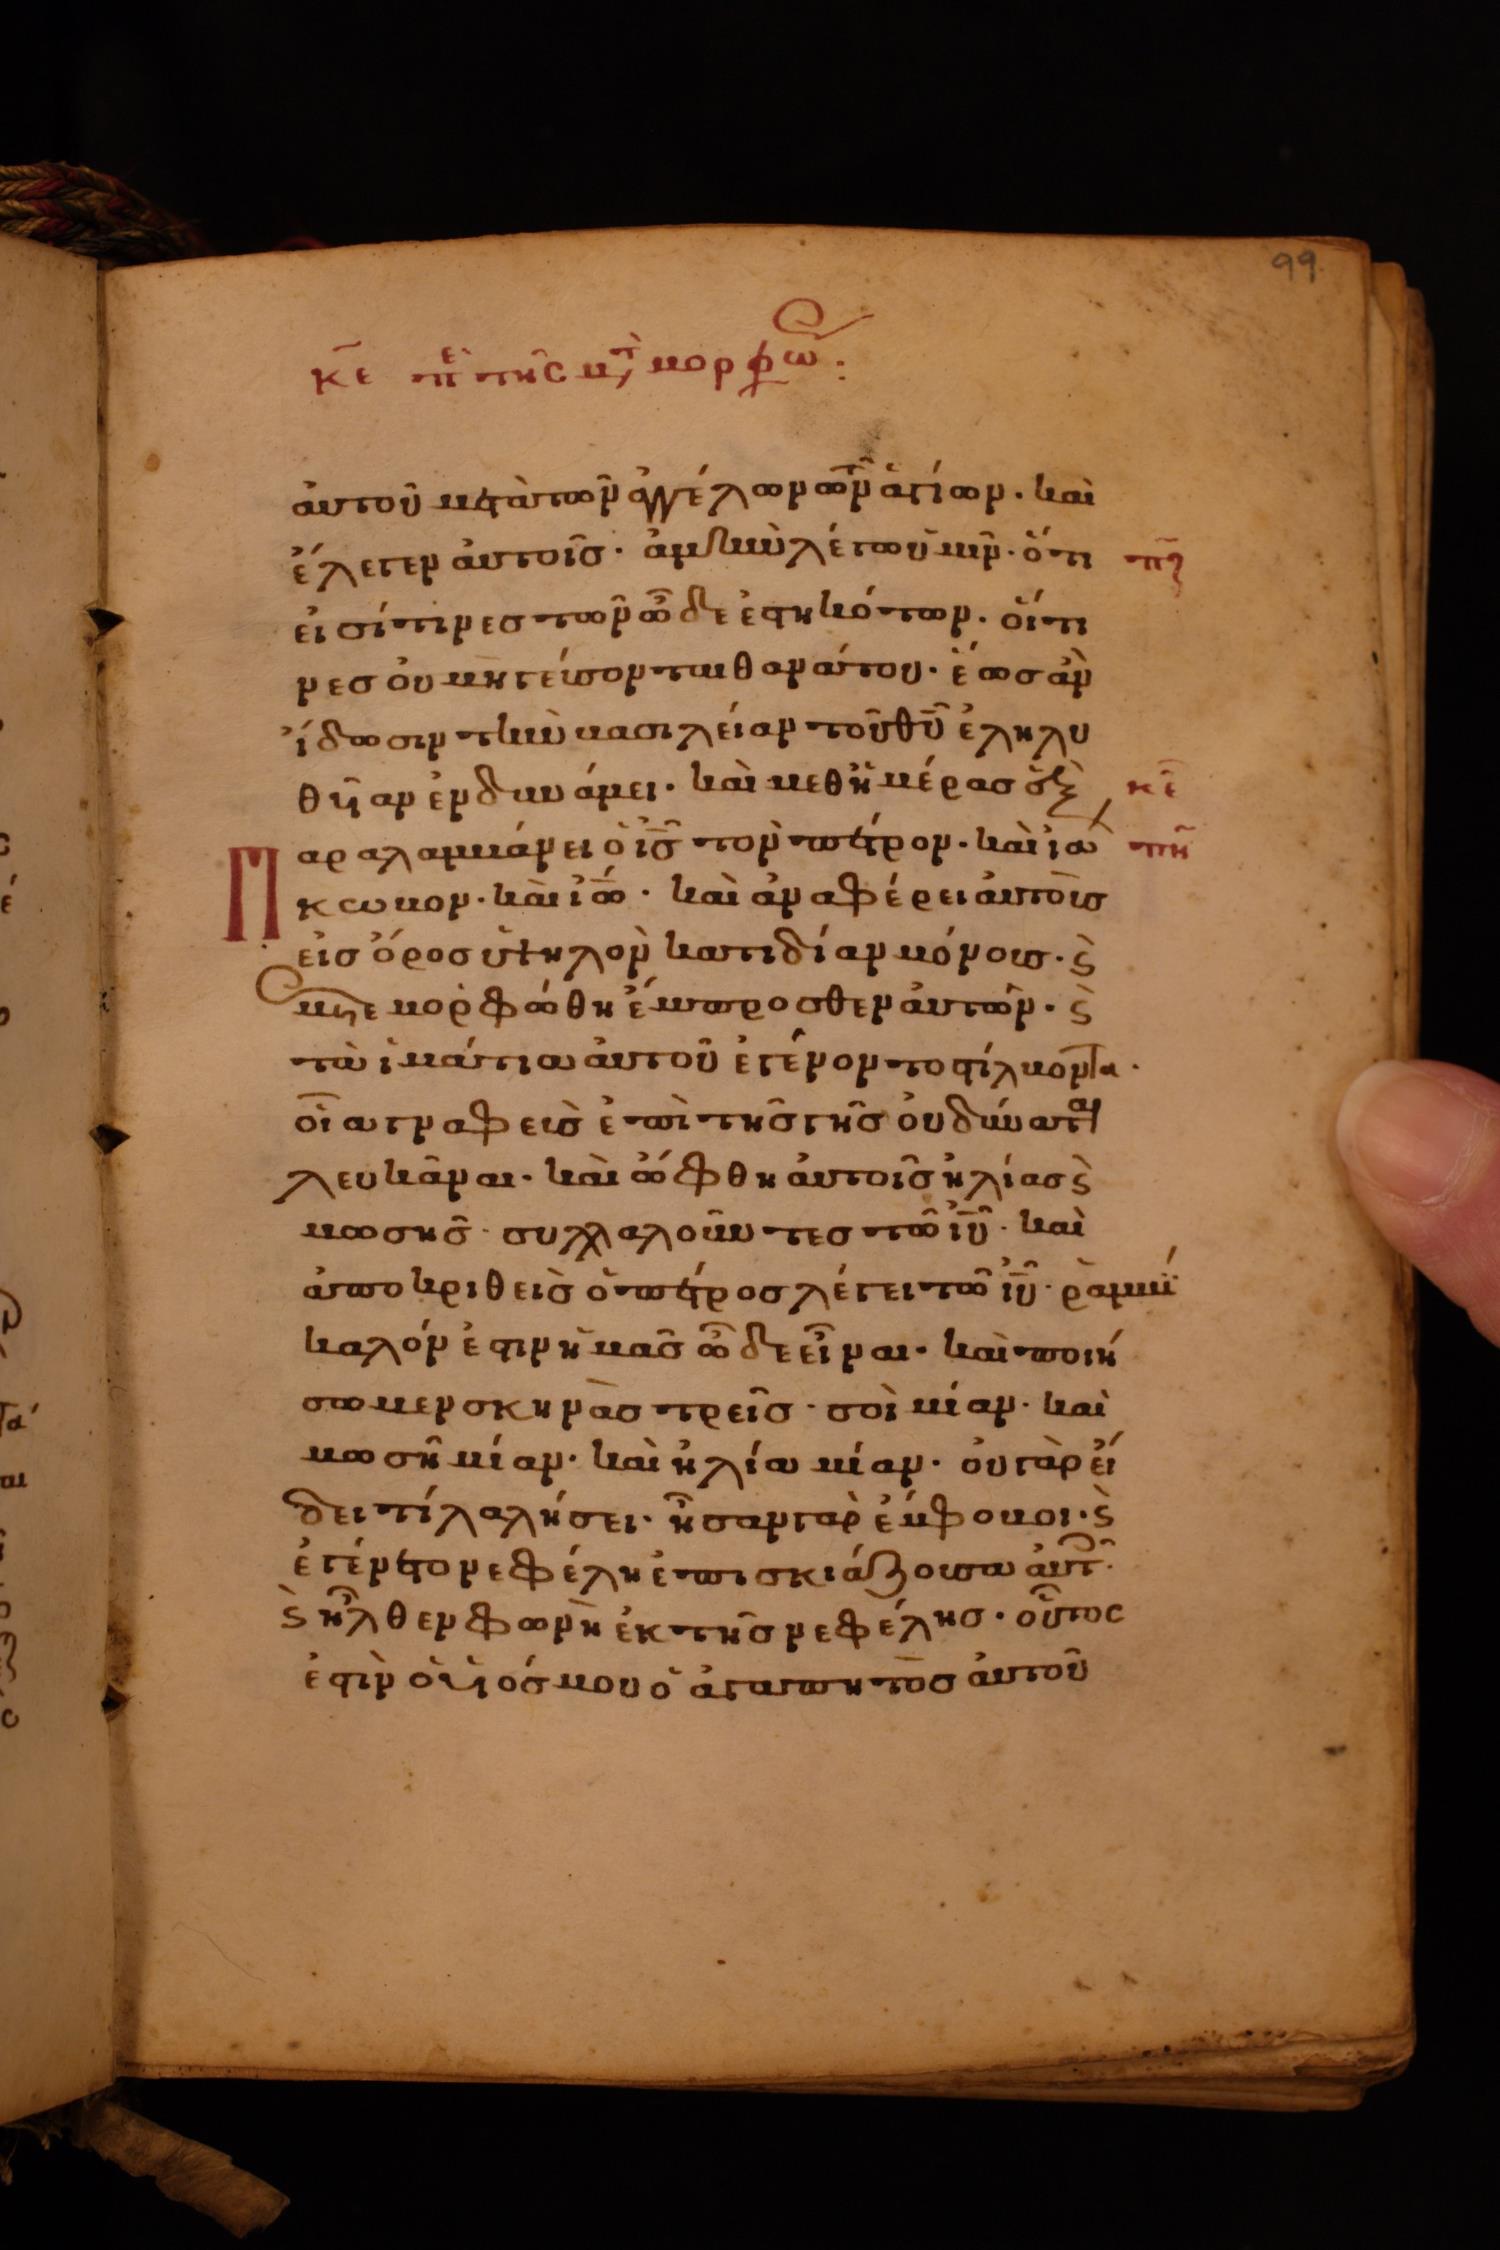 99
κε̄ περὶ τῆς μεταμορφώ:
ἀυτοῦ μετὰ τῶν ἀγγέλων τῶν ἁγίων· καὶ
ἔλεγεν ἀυτοῖς· ἀμὴν λέγω ὑμῖν· ὅτι πζ
εἰσί τινες τῶν ὧδε ἑστηκότων· οἵτι
νες οὐ μὴ γεύσονται θανάτου· ἕως ἂν
ἴδωσιν τὴν βασιλείαν τοῦ θῦ ἐληλυ
θῦιαν ἐν δυνάμει· καὶ μεθ ἡμέρας ἓξ κε̄
Παραλαμβάνει ὁ ις̄ τὸν πέτρον· καὶ ϊα πη̄
κωβον· καὶ ἰω̄· καὶ ἀναφέρει ἀυτοὺς
εἰς ὄρος ὑψηλὸν κατιδίαν μόνους· ϛ
μετεμορφώθη ἔμπροσθεν ἀυτῶν· ϛ
τὰ ἱμάτια ἀυτοῦ ἐγένοντο στίλβοντα·
οἷα γναφεὺς ἐπὶ τῆς γῆς οὐ δύναται
λευκᾶναι· καὶ ὤφθη ἀυτοῖς ἠλίας ϛ
μωσῆς· συλλαλοῦντες τῶ ιῦ· καὶ
ἀποκριθεὶς ὁ πέτρος λέγει τῶ ιῦ· ῥαββΐ
καλόν ἐστιν ἡμᾶς ὧδε εἶναι· καὶ ποιή
σωμεν σκηνὰς τρεῖς· σοὶ μίαν· καὶ
μωσῆ μίαν· καὶ ἠλία μίαν· οὐ γὰρ εἴ
δει τί λαλήσει· ἦσαν γὰρ ἔμφοβοι· ϛ
ἐγένετο νεφέλη ἐπισκιάζουσα ἀυτ·
ϛ ἦλθεν φωνὴ ἐκ τῆς νεφέλης· οὗτος
ἐστὶν ὁ υἱός μου ὁ ἀγαπητὸς ἀυτοῦ